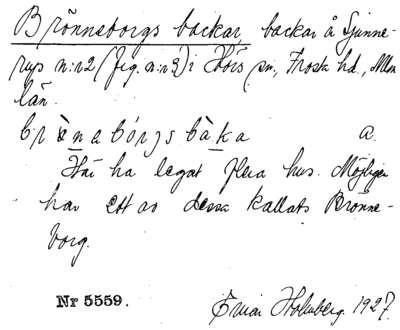 Brönneborgs backar, backar å Sjunne-
rup n:r 2 (Jfg. n:r 3) i Hörs sn, Frosta hd, Mlm
län.
b r ö n a b ó r g s b à k a a.
Här ha legat flera hus. Möjligen
har ett av dessa kallats Brönne-
borg.
Nr 5559.
Ewar Holmberg. 1927.